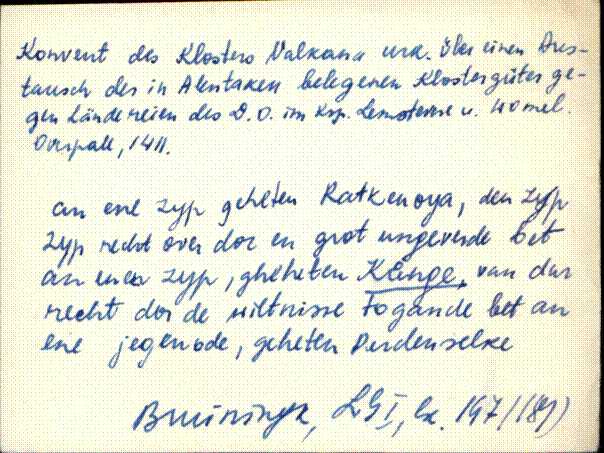 Konvent des Klosters Valkana urk. über einen Aus-
tausch der in Alentaken belegenen Klostergüter ge-
gen Ländereien des D. O. im Ksp. u.
1411.
an ene zyp geheten Ratkenoya, den zyp
zyp recht over dor en grot ungeverde bet
an ener zyp, gheheten Klinge, van dar
recht dor de wiltnisse to gande bet an
ene jegenode, geheten
Bruiningk, LG I, 147/189)